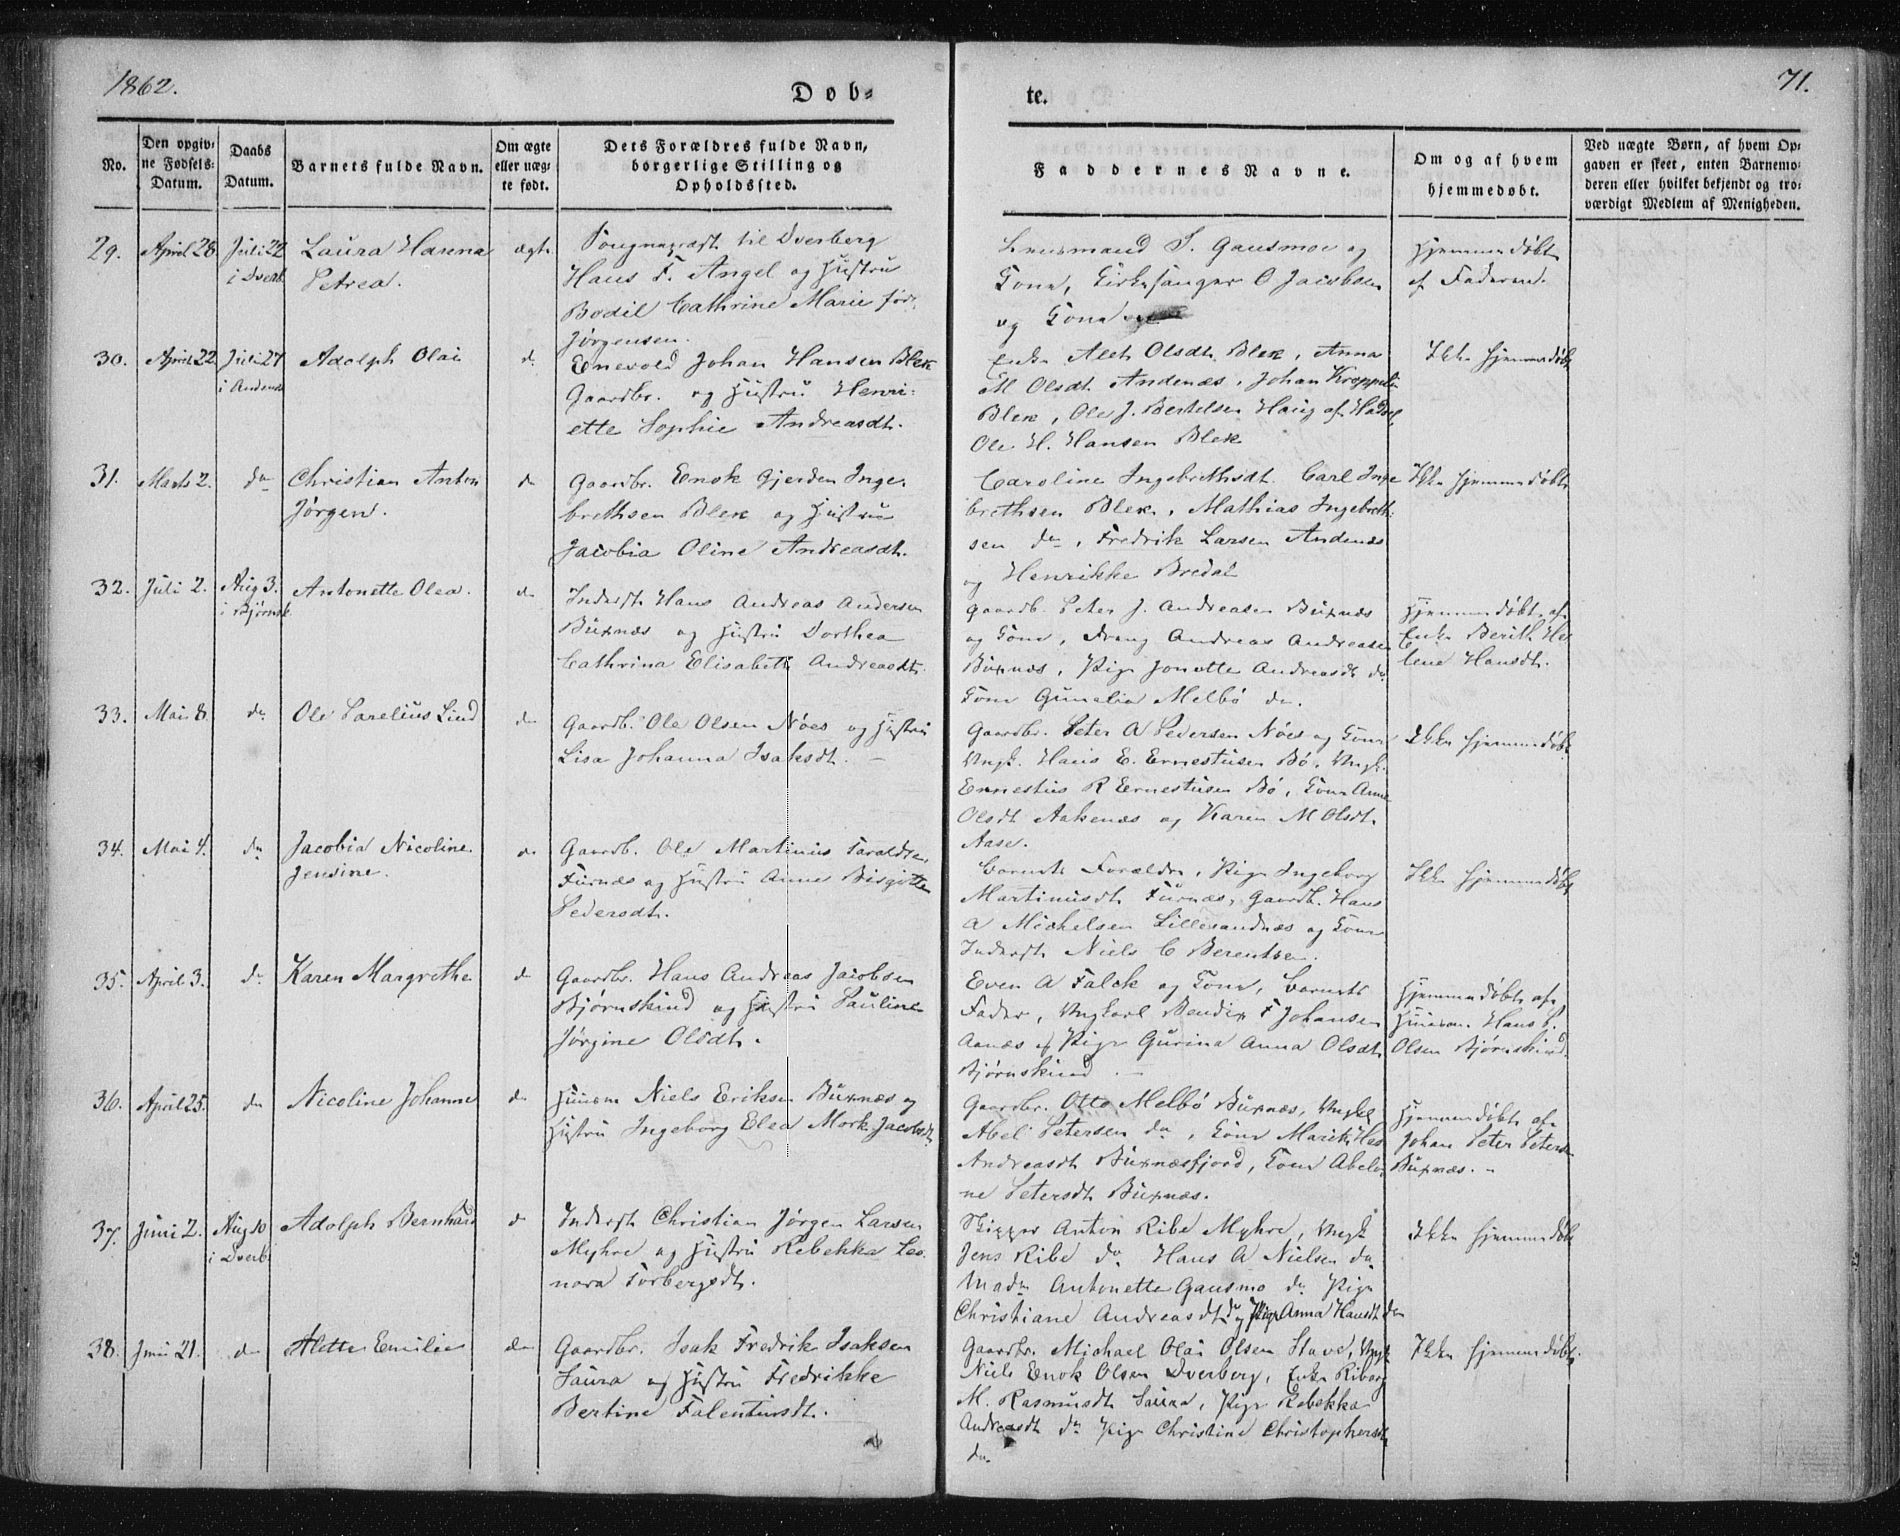 1862.
Døb-
te.
71.
No.
Den opgiv-
ne Fødsels-
Datum.
Daabs
Datum.
Barnets fulde Navn.
Om ægte
eller uæg-
te født.
Dets Forældres fulde Navn,
borgerlige Stilling og
Opholdssted.
Faddernes Navne.
Om og af hvem
hjemmedøbt.
Ved uægte Børn, af hvem Op-
gaven er skeet, enten Barnemo-
deren eller hvilket bekjendt og tro-
værdigt Medlem af Menigheden.
29. April 28. Juli 22
i Dverb.
Laura Hanna
Petrea.
ægte
Sognepræst til Dverberg
Hans F. Angel og Hustru
Bodil Cathrine Marie født
Jørgensen.
Lensmand S. Gausmoe og
Kone, Kirkesanger O Jacobsen
og Kone
Hjemmedøbt
af Faderen.
30. April 22 Juli 27
i Andenæs
Adolph Olai
do
Enevold Johan Hansen Blek
Gaardbr. og Hustru Henri-
ette Sophie Andreasdt.
Enke Aleth Olsdt. Blek, Anna
M Olsdt Andenæs, Johan Kroppelin
Blek, Ole J. Bertelsen Haug af Hadsel,
Ole H. Hansen Blek
Ikke hjemmedøbt
31. Marts 2. do
Christian Anton
Jørgen.
do
Gaardbr. Enok Gjerden Inge-
brethsen Blek og Hustru
Jacobia Oline Andreasdt.
Caroline Ingebrethsdt. Carl Inge
brethsen Blek, Mathias Ingebreth-
sen do, Fredrik Larsen Andenæs
og Henrikke Bredal
Ikke hjemmedøbt
32. Juli 2. Aug 3.
i Bjørnsk
Antonette Olea.
do
Inderst Hans Andreas Andersen
Buxnæs og Hustru Dorthea
Cathrina Elisabeth Andreasdt.
Gaardb. Peter J. Andreasen Buxnæs
og Kone, Dreng Andreas Andreasen
Buxnæs, Pige Jonette Andreasdt do
Kone Gunelia Melbø do.
Hjemmedøbt af
Enke Berith He
lene Hansdt.
33. Mai 8. do
Ole Parelius Lind
do
Gaardb. Ole Olsen Nöes og Hustru
Lisa Johanna Isaksdt.
Gaardbr. Peter A Pedersen Nöes og Kone
Ungk. Hans E. Ernestusen Bø, Ungk.
Ernestus R Ernestusen Bø, Kone Anne
Olsdt Aakenæs og Karen M Olsdt.
Aase.
Ikke hjemmedøbt
34. Mai 4. do
Jacobia Nicoline
Jensine.
do
Gaardb. Ole Martinus Taraldsen
Furnæs og Hustru Anne Birgitte
Pedersdt.
Barnets Forældre, Pige Ingeborg
Martinusdt Furnæs, Gaardb. Hans
A Michelsen Lillesandnæs og Kone
Inderst Niels C Berentsen.
Ikke hjemmedøbt
35. April 3. do
Karen Margrethe
do
Gaardbr. Hans Andreas Jacobsen
Bjørnskind og Hustru Pauline
Jørgine Olsdt.
Even A Falck og Kone, Barnets
Fader, Ungkarl Bendix F Johansen
Aanæs og Pige Gurina Anna Olsdt.
Bjørnskind.
Hjemmedøbt af
Huusm. Hans P.
Olsen Bjørnskind.
36. April 25. do
Nicoline Johanne
do
Huusm Niels Eriksen Buxnæs og
Hustru Ingeborg Elea Mork Jacobsdt
Gaardbr. Otto Melbö Buxnæs, Ungkl
Abel Petersen do, Kone Marith
Andreasdt Buxnæsfjord, Kone Abelo
ne Petersdt Buxnæs.
Hjemmedøbt af
Johan Peter Petersen
Buxnæs.
37. Juni 2. Aug 10
i Dverb.
Adolph Bernhard
do
Inderst Christian Jørgen Larsen
Myhre og Hustru Rebekka Leo
nora Torbergsdt.
Skipper Anton Ribe Myhre, Ungk
Jens Ribe do Hans A Nielsen do
Mad. Antonette Gausmo do Pige
Christiane Andreasdt. do og Pige Anna Hansdt do
Ikke hjemmedøbt
38. Juni 21. do
Alette Emilie
do
Gaardbr. Isak Fredrik Isaksen
Saura og Hustru Fredrikke
Bertine Falentinsdt.
Gaardbr. Michael Olai Olsen Stave, Ungk
Niels Enok Olsen Dverberg, Enke Riborg
M. Rasmusdt Saura, Pige Rebekka
Andreasdt do Pige Christine Christophersdt
do.
Ikke hjemmedøbt.